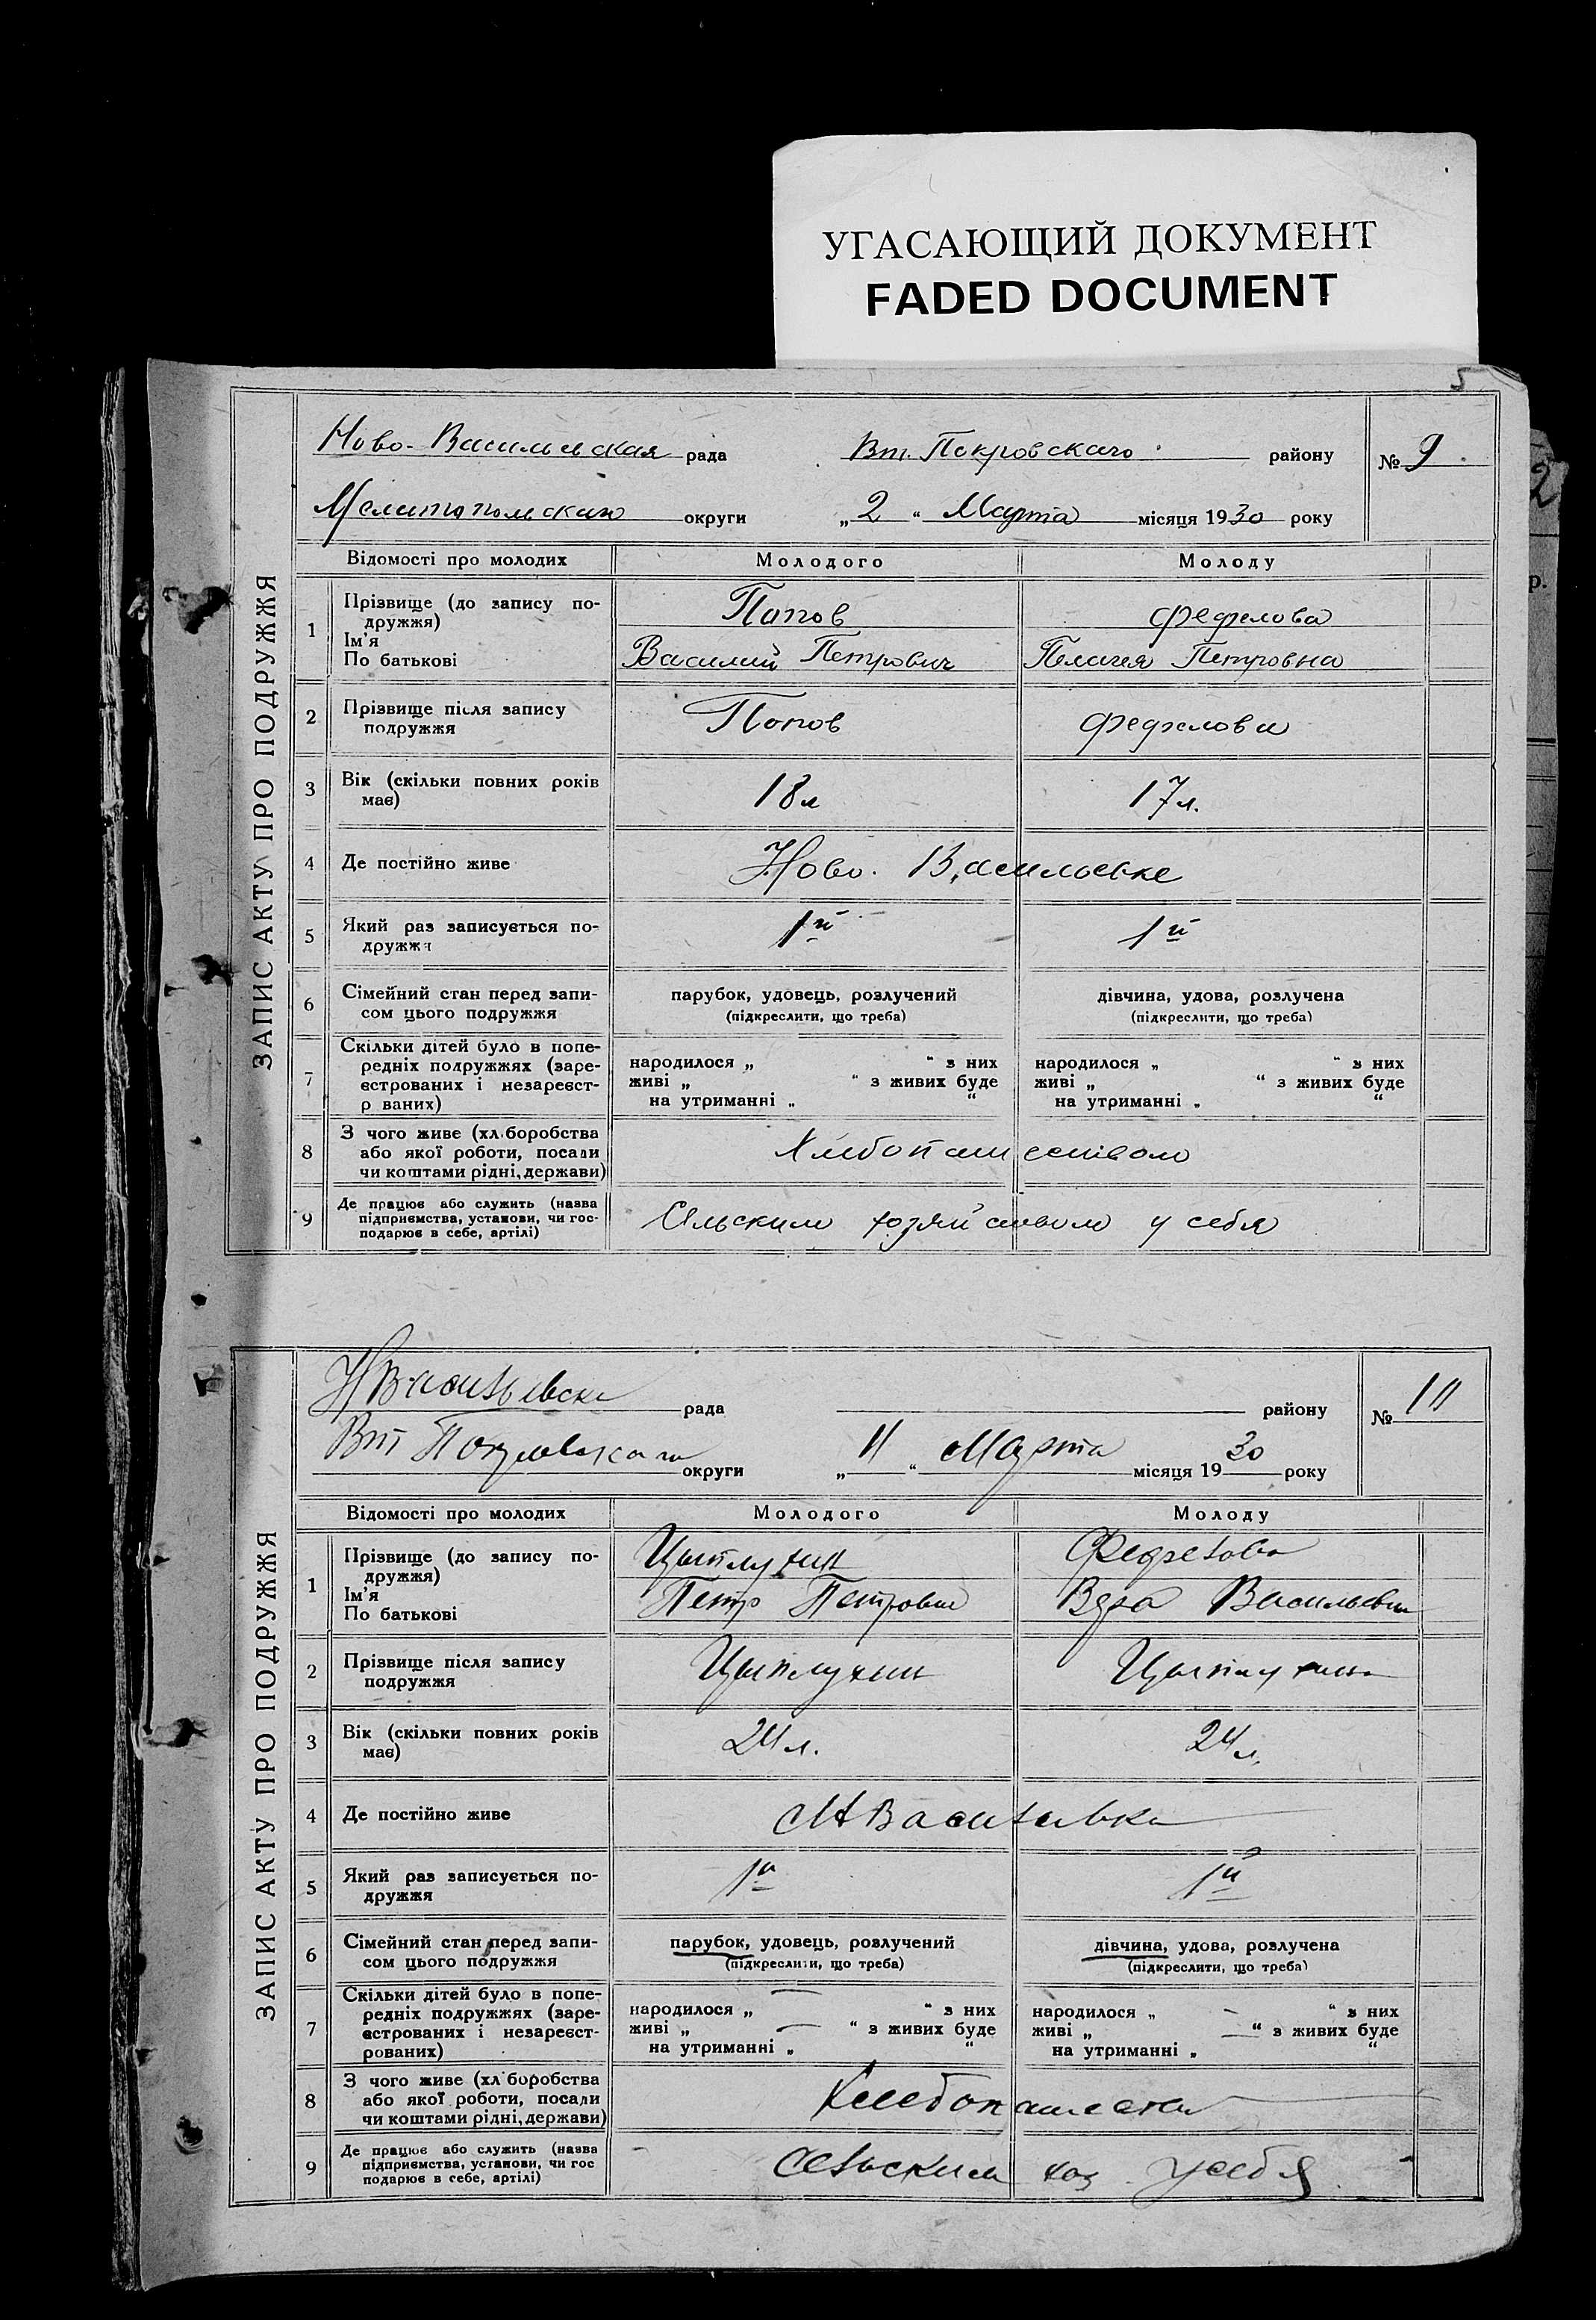 УГАСАЮЩИЙ ДОКУМЕНТ
FADED DOCUMENT
5
2
р.
ЗАПИС АКТУ ПРО ПОДРУЖЖЯ
Ново-Васильевская рада Вт. Покровского району № 9.
Мелитопольския округи „2“ Марта місяця 1930 року
Відомості про молодих Молодого Молоду
1 Прізвище (до запису по-
дружжя)
Ім'я
По батькові
Попов Федрелова
Василий Петрович Пелагея Петровна
2 Прізвище після запису
подружжя
Попов Федрелова
3 Вік (скільки повних років
має)
18 л 17 л.
4 Де постійно живе Ново. Васильевке
5 Який раз записується по-
дружжя
1й 1й
6 Сімейний стан перед запи-
сом цього подружжя
парубок, удовець, розлучений дівчина, удова, розлучена
(підкреслити, що треба) (підкреслити, що треба)
7 Скільки дітей було в попе-
редніх подружжях (заре-
єстрованих і незареєст-
р ваних)
народилося „ “ з них народилося „ “ з них
живі „ “ з живих буде живі „ “ з живих буде
на утриманні „ “ на утриманні „ “
8 З чого живе (хл.боробства
або якої роботи, посади
чи коштами рідні, держави)
Хлебопашеством
9 Де працює або служить (назва
підприємства, установи, чи гос-
подарює в себе, артілі)
Сельским хозяйством у себя
ЗАПИС АКТУ ПРО ПОДРУЖЖЯ
НВасильевска рада району № 10
Вт Покровского округи „11“ Марта місяця 1930 року
Відомості про молодих Молодого Молоду
1 Прізвище (до запису по-
дружжя)
Ім'я
По батькові
Цыплухин Федрелова
Петр Петрович Вера Васильевн
2 Прізвище після запису
подружжя
Цыплухин Цыплухина
3 Вік (скільки повних років
має)
24 л. 24 л.
4 Де постійно живе НВасильевка
5 Який раз записується по-
дружжя
1й 1й
6 Сімейний стан перед запи-
сом цього подружжя
парубок, удовець, розлучений дівчина, удова, розлучена
(підкреслити, що треба) (підкреслити, що треба)
7 Скільки дітей було в попе-
редніх подружжях (заре-
єстрованих і незареєст-
рованих)
народилося „ — “ з них народилося „ — “ з них
живі „ — “ з живих буде живі „ — “ з живих буде
на утриманні „ “ на утриманні „ “
8 З чого живе (хл боробства
або якої роботи, посади
чи коштами рідні, держави)
9 Де працює або служить (назва
підприємства, установи, чи гос
подарює в себе, артілі)
Сельским хоз. у себя